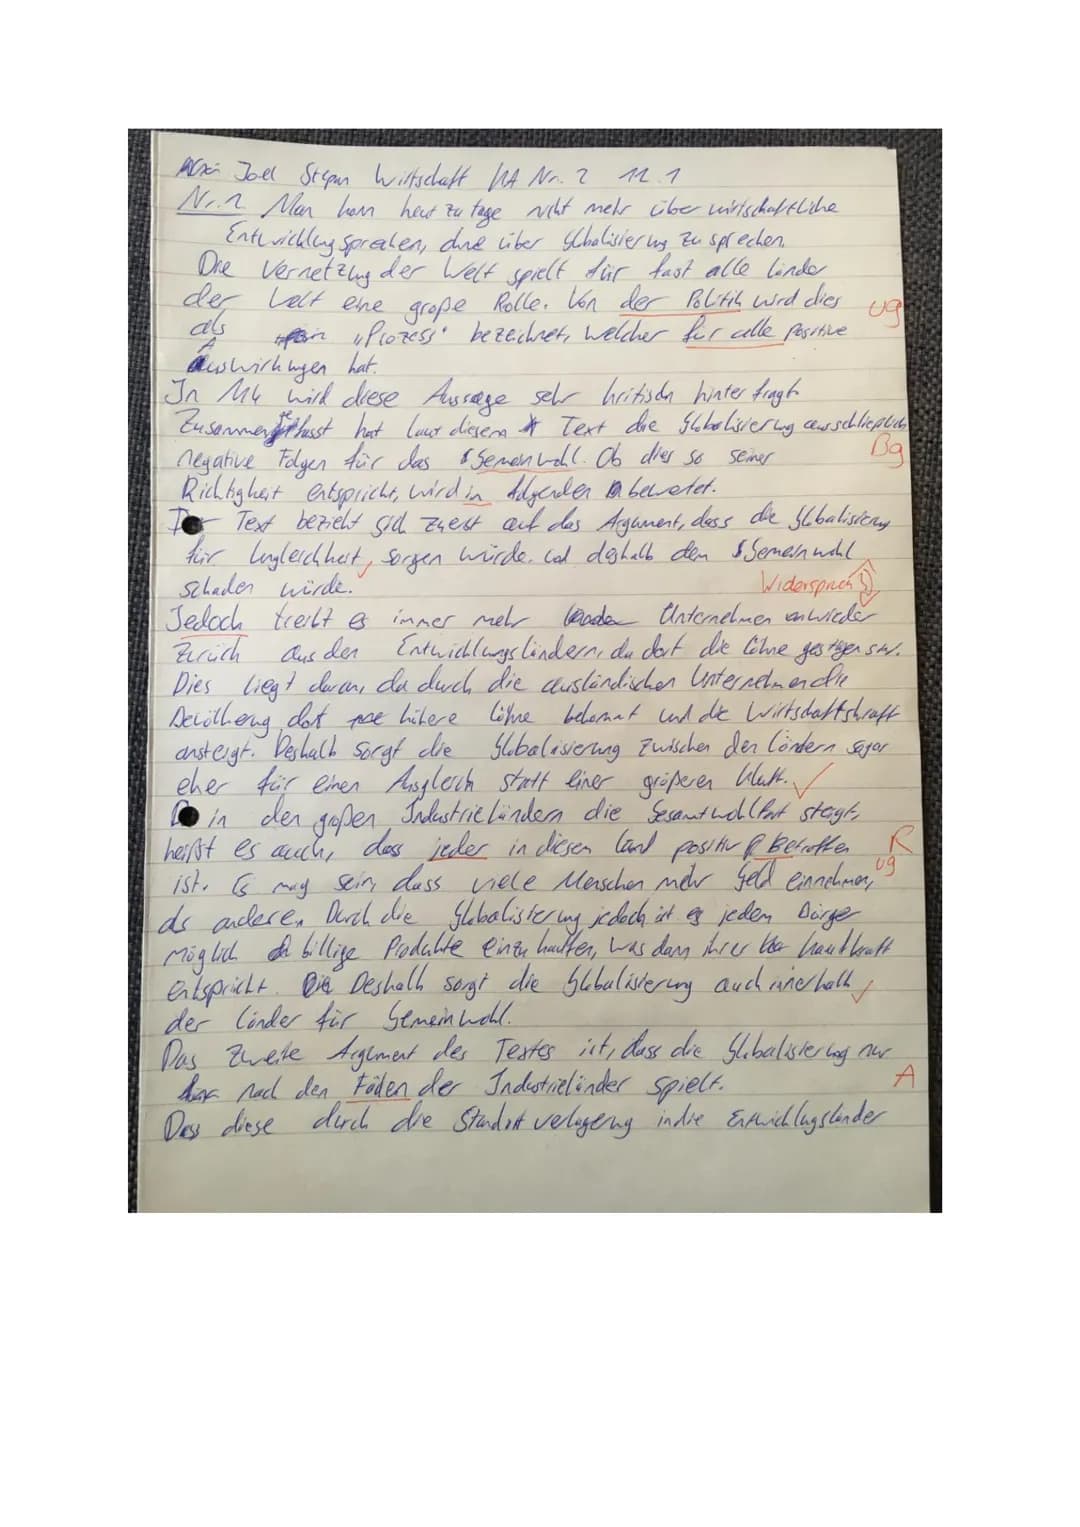 Joel Stepan Wirtschaft KA Nr. 2 11.1
Nr.1 Man kann heut zu tage nicht mehr über wirtschaftliche
Entwicklung sprechen, ohne über Globalisierung zu sprechen.
Die Vernetzung der Welt spielt für fast alle Länder
der Welt eine große Rolle. Von der Politik wird dies ug
als "Prozess" bezeichnet, welcher für alle positive
Auswirkungen hat.
In M4 wird diese Aussage sehr kritisch hinterfragt.
Zusammengefasst hat laut diesem Text die Globalisierung ausschließlich
negative Folgen für das Gemeinwohl. Ob dies so seiner Bg
Richtigkeit entspricht, wird in folgenden bewertet.
Der Text bezieht sich zuerst auf das Argument, dass die Globalisierung
für Ungleichheit, sorgen würde und deshalb dem Gemeinwohl
schaden würde. Widerspruch
Jedoch treibt es immer mehr Unternehmen wieder
zurück aus den Entwicklungsländern, da dort die Löhne gestiegen sind.
Dies liegt daran, da durch die ausländischen Unternehmen die
Bevölkerung dort höhere Löhne bekommt und die Wirtschaftskraft
ansteigt. Deshalb sorgt die Globalisierung zwischen den Ländern sogar
eher für einen Ausgleich statt einer größeren Kluft.
in den großen Industrieländern die Gesamtwohlfart steigt,
heißt es auch, dass jeder in diesen Land positiv Betroffen R
ist. Es mag sein, dass viele Menschen mehr Geld einnehmen, ug
als anderen. Durch die Globalisierung jedoch ist es jedem Bürger
möglich billige Produkte einzukaufen, was dann ihrer Kaufkraft
entspricht. Deshalb sorgt die Globalisierung auch innerhalb
der Länder für Gemeinwohl.
Das zweite Argument des Textes ist, dass die Globalisierung nur
nach den Fäden der Industrieländer spielt. A
Dass diese durch die Standortverlagerung in die Entwicklungsländer